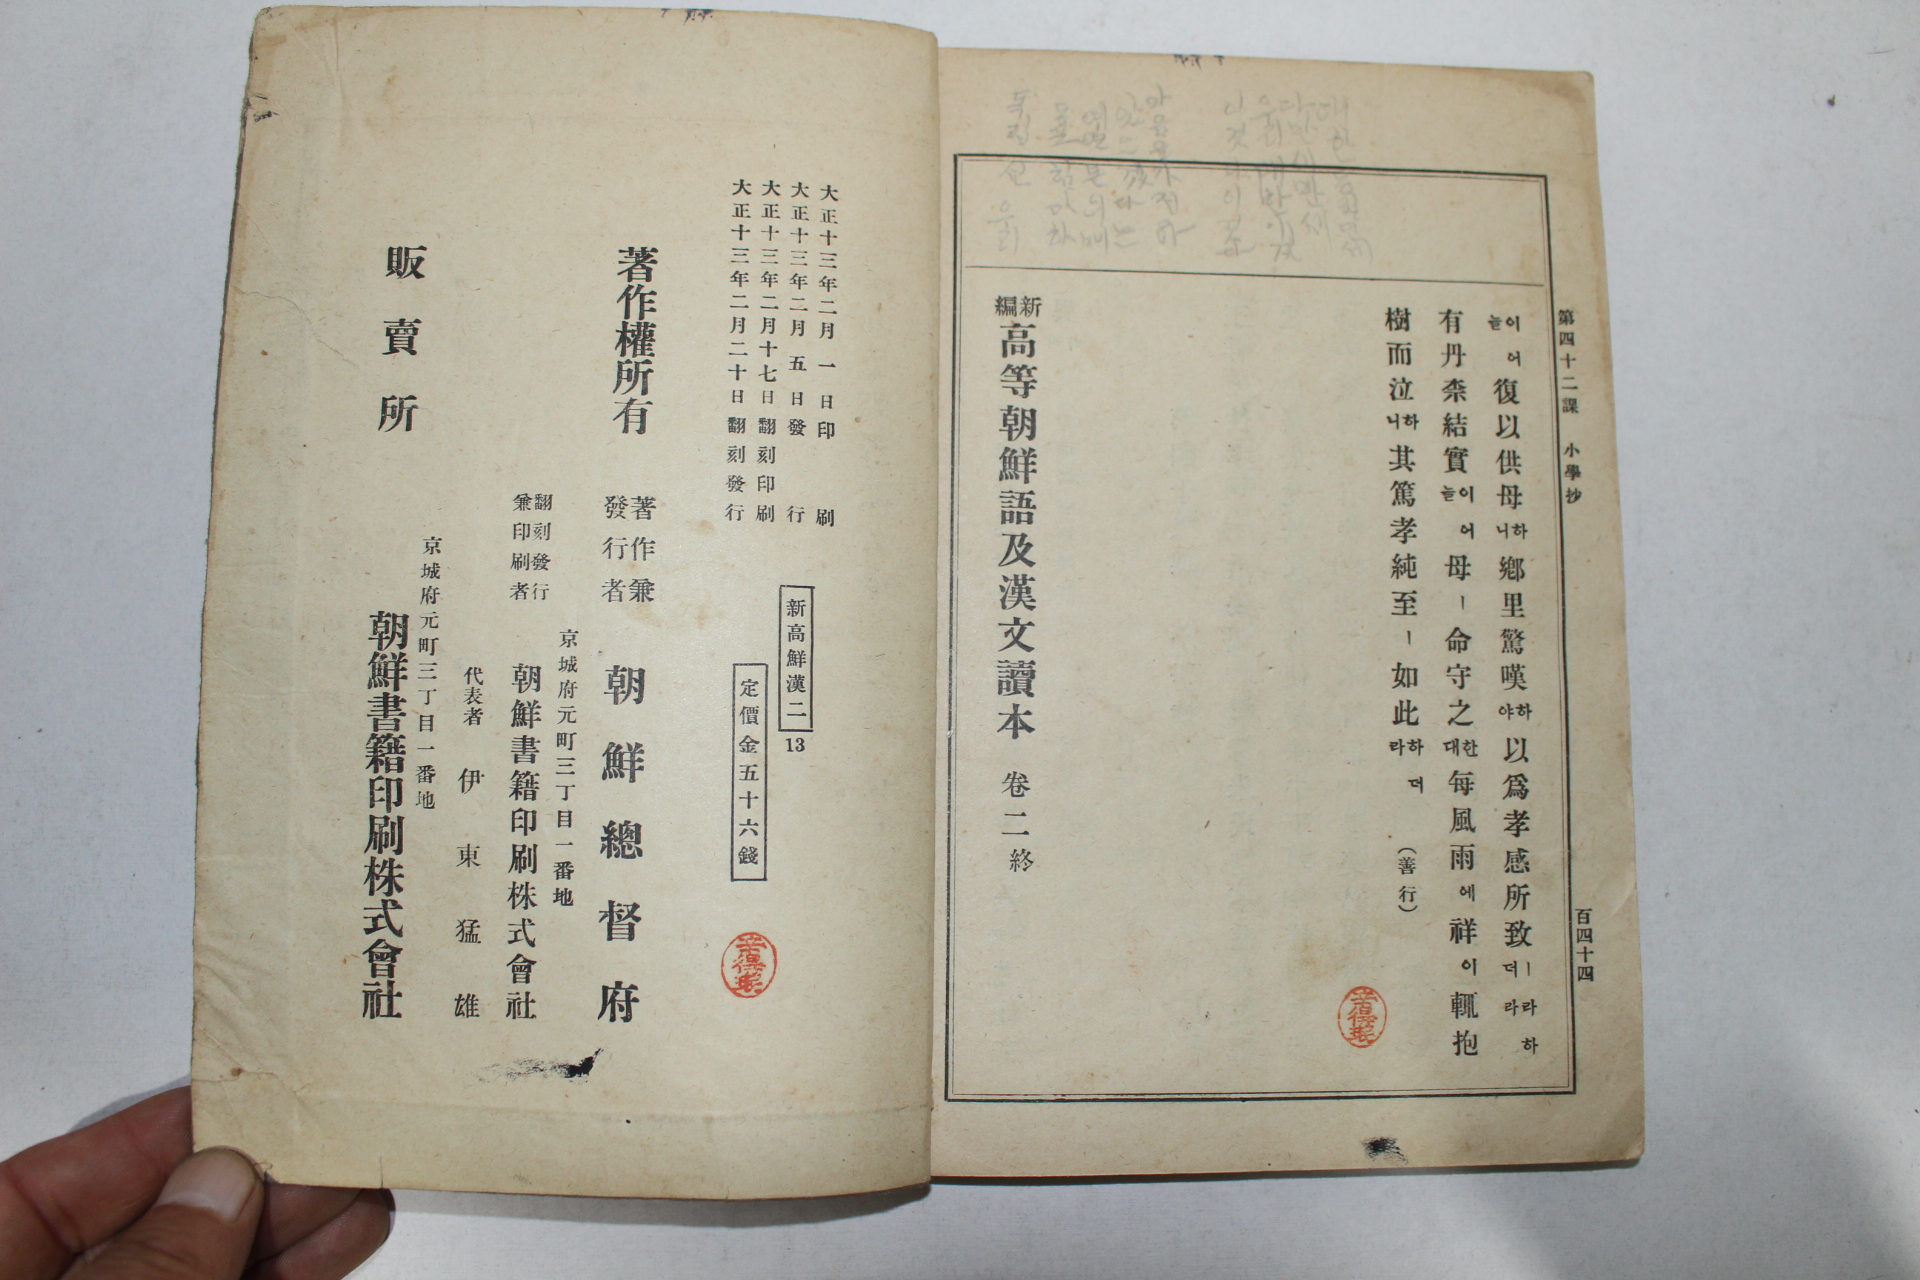 第四十二課 小學抄
百四十四
이어늘 復以供母하니 鄕里驚嘆하야 以爲孝感所致ㅣ라하더라
有丹柰結實이어늘 母ㅣ命守之한대 每風雨에 祥이 輒抱
樹而泣하니 其篤孝純至ㅣ如此하더라 (善行)
新編高等朝鮮語及漢文讀本 卷二 終
大正十三年二月一日印刷
大正十三年二月五日發行
大正十三年二月十七日翻刻印刷
大正十三年二月二十日翻刻發行
新高鮮漢二
13
定價金五十六錢
著作權所有
著作兼發行者 朝鮮總督府
京城府元町三丁目一番地
翻刻發行兼印刷者 朝鮮書籍印刷株式會社
代表者 伊東猛雄
京城府元町三丁目一番地
販賣所 朝鮮書籍印刷株式會社